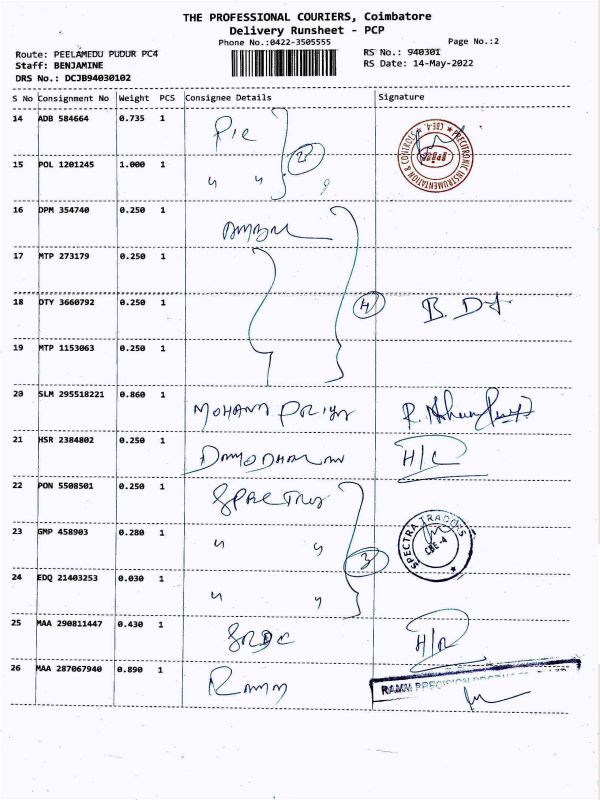 THE PROFESSIONAL COURIERS, Coimbatore
Delivery Runsheet - PCP
Phone No.:0422-3505555
Page No.:2
Route: PEELAMEDU PUDUR PC4
RS No.: 940301
Staff: BENJAMINE
RS Date: 14-May-2022
DRS No.: DCJB94030102
S No Consignment No Weight PCS Consignee Details Signature
14 ADB 584664 0.735 1
PRECITRONIC INSTRUMENTATION & CONTROLS CBE-4.
15 POL 1201245 1.000 1 " " 2
16 DPM 354740 0.250 1
17 MTP 273179 0.250 1
18 DTY 3660792 0.250 1 4
19 MTP 1153063 0.250 1
20 SLM 295518221 0.860 1 MOHANA PRIYA
21 HSR 2384802 0.250 1 DAMODHARAN H/C
22 PON 5508501 0.250 1
SPECTRA TRADERS CBE-4
23 GMP 458903 0.280 1 " " 3
24 EDQ 21403253 0.030 1 " "
25 MAA 290811447 0.430 1
26 MAA 287067940 0.890 1 RAMM
RAMM PRECISION